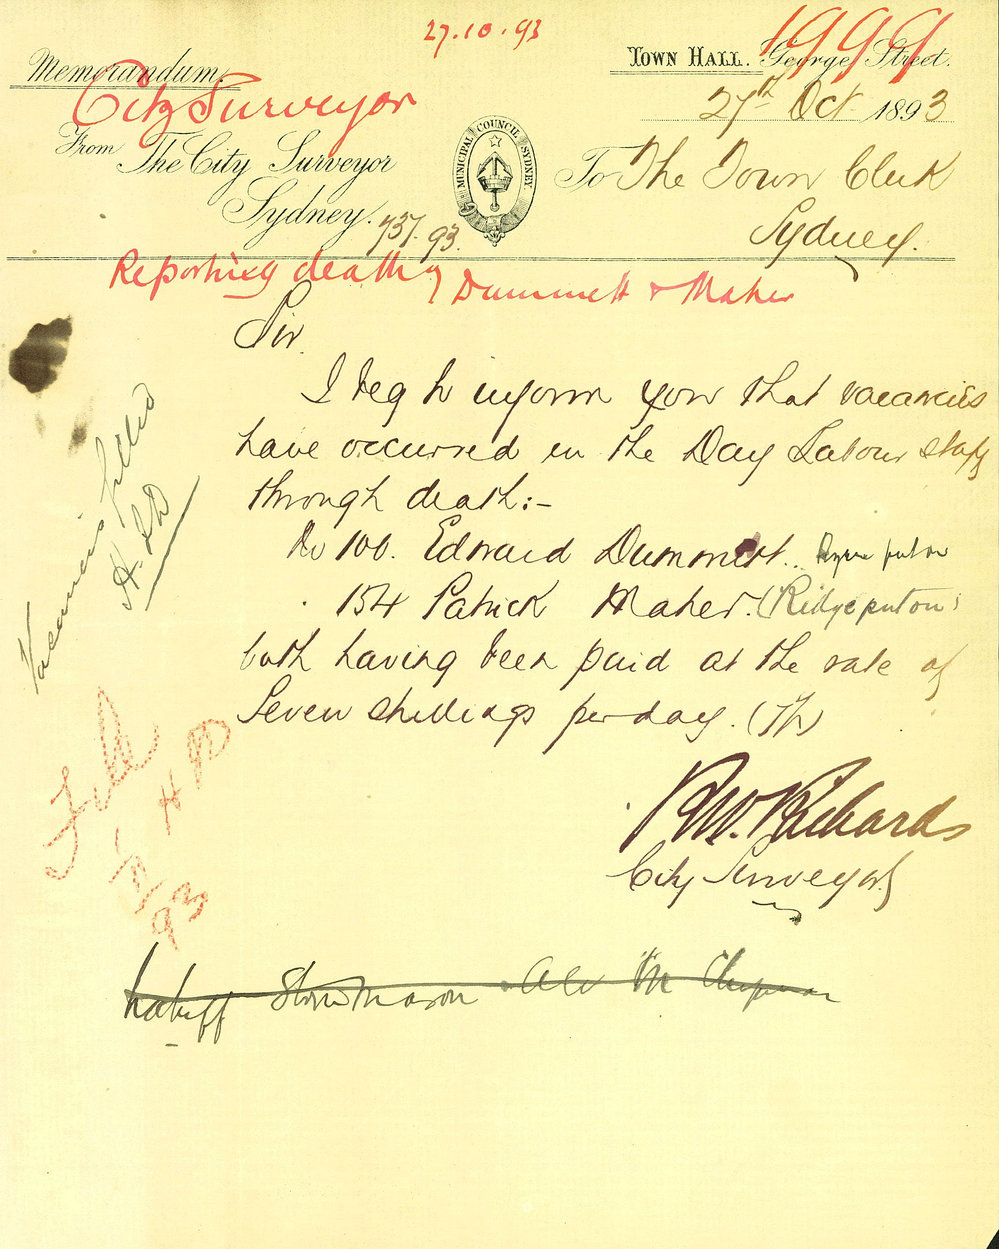 27.10.93
1999
Memorandum.
TOWN HALL. George Street.
City Surveyor
27th Oct 1893
From The City Surveyor
Sydney.
MUNICIPAL COUNCIL SYDNEY.
To The Town Clerk
Sydney.
737.93.
Reporting death of Dummett & Maher
Sir
I beg to inform you that vacancies
have occurred in the Day Labour staff
through death:-
No 100. Edward Dummett..
154 Patrick Maher. (Ridge puton)
both having been paid at the rate of
Seven shillings per day. (7/-)
R.W. Richards
City Surveyor
Vacancies filled
H.D
File
HD
93
Stonemason